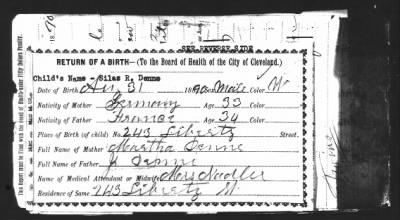 SEE REVERSE SIDE
RETURN OF A BIRTH—(To the Board of Health of the City of Cleveland.)
Child's Name - Silas R. Denne
Date of Birth 31 1890 Male Color W
Nativity of Mother Germany Age 33 Color
Nativity of Father France Age 34 Color
Place of Birth (of child) No. 243 Liberty Street.
Full Name of Mother Martha Denne
Full Name of Father J Denne
Name of Medical Attendant or Midwife Mrs Nadler
Residence of Same 243 Liberty St.
This Report must be filed with the Board of Health under Fifty Dollars Penalty.